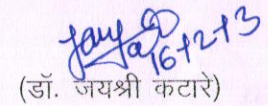 16+2+3
(डॉ. जयश्री कटारे)